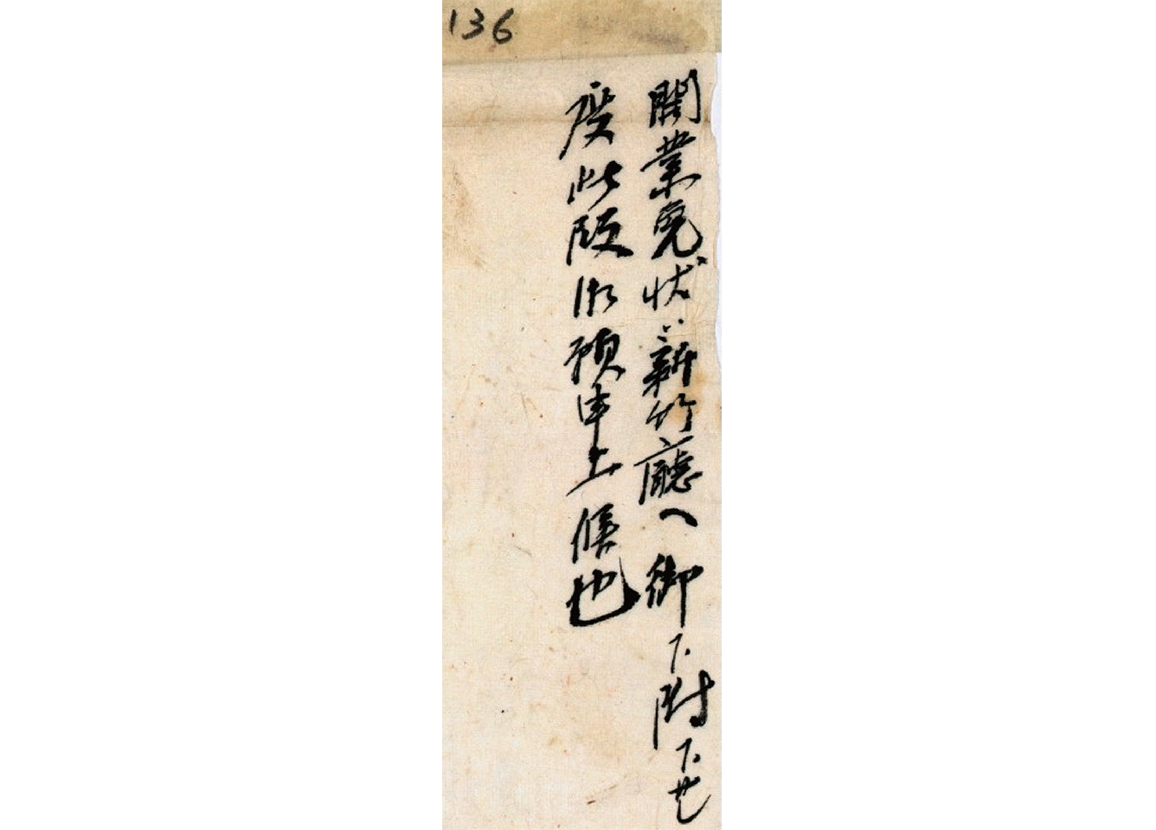 136
開業免状ハ新竹廳ヘ御下附下サレ
度此段御願申上候也